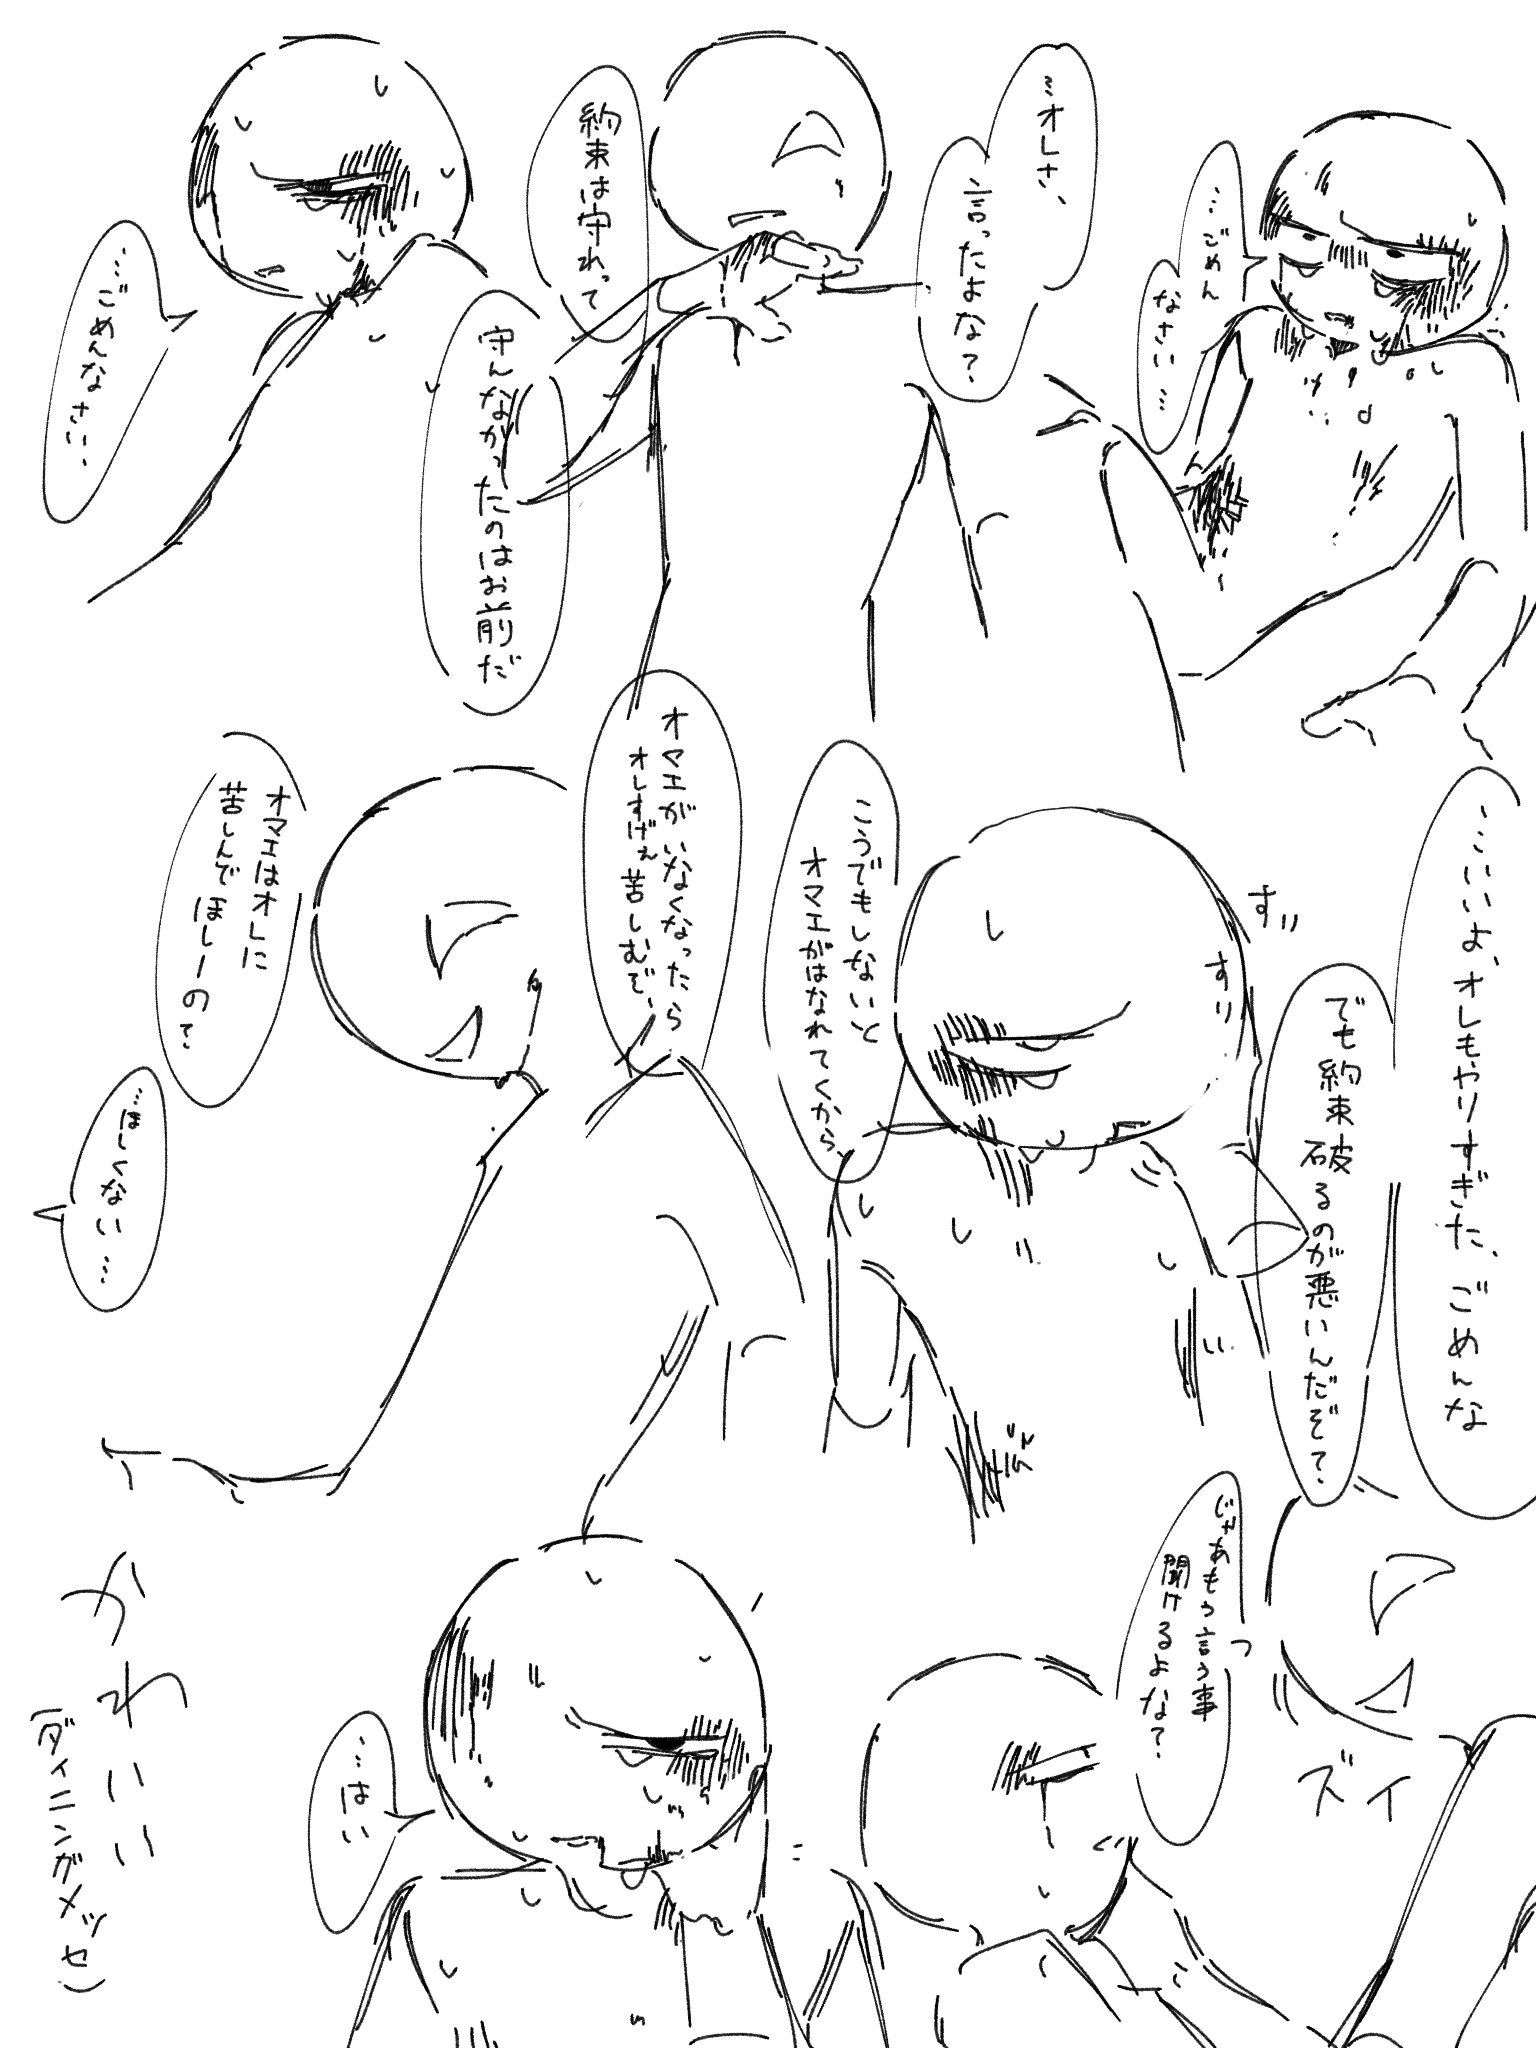 …ごめん
なさい…
…オレさ、
言ったよな?
約束は守れって
守んなかったのはお前だ
…ごめんなさい、
…いいよ、オレもやりすぎた、ごめんな
でも約束破るのが悪いんだぞ?
すり
すり
こうでもしないと
オマエがはなれてくから、
オマエがいなくなったら
オレすげぇ苦しむぞ、
オマエはオレに
苦しんで
ほしーの?
…ほしくない…
じゃあもう言う事
聞けるよな?
ズイッ
…はい
かわいい
(ダイニングメッセ)